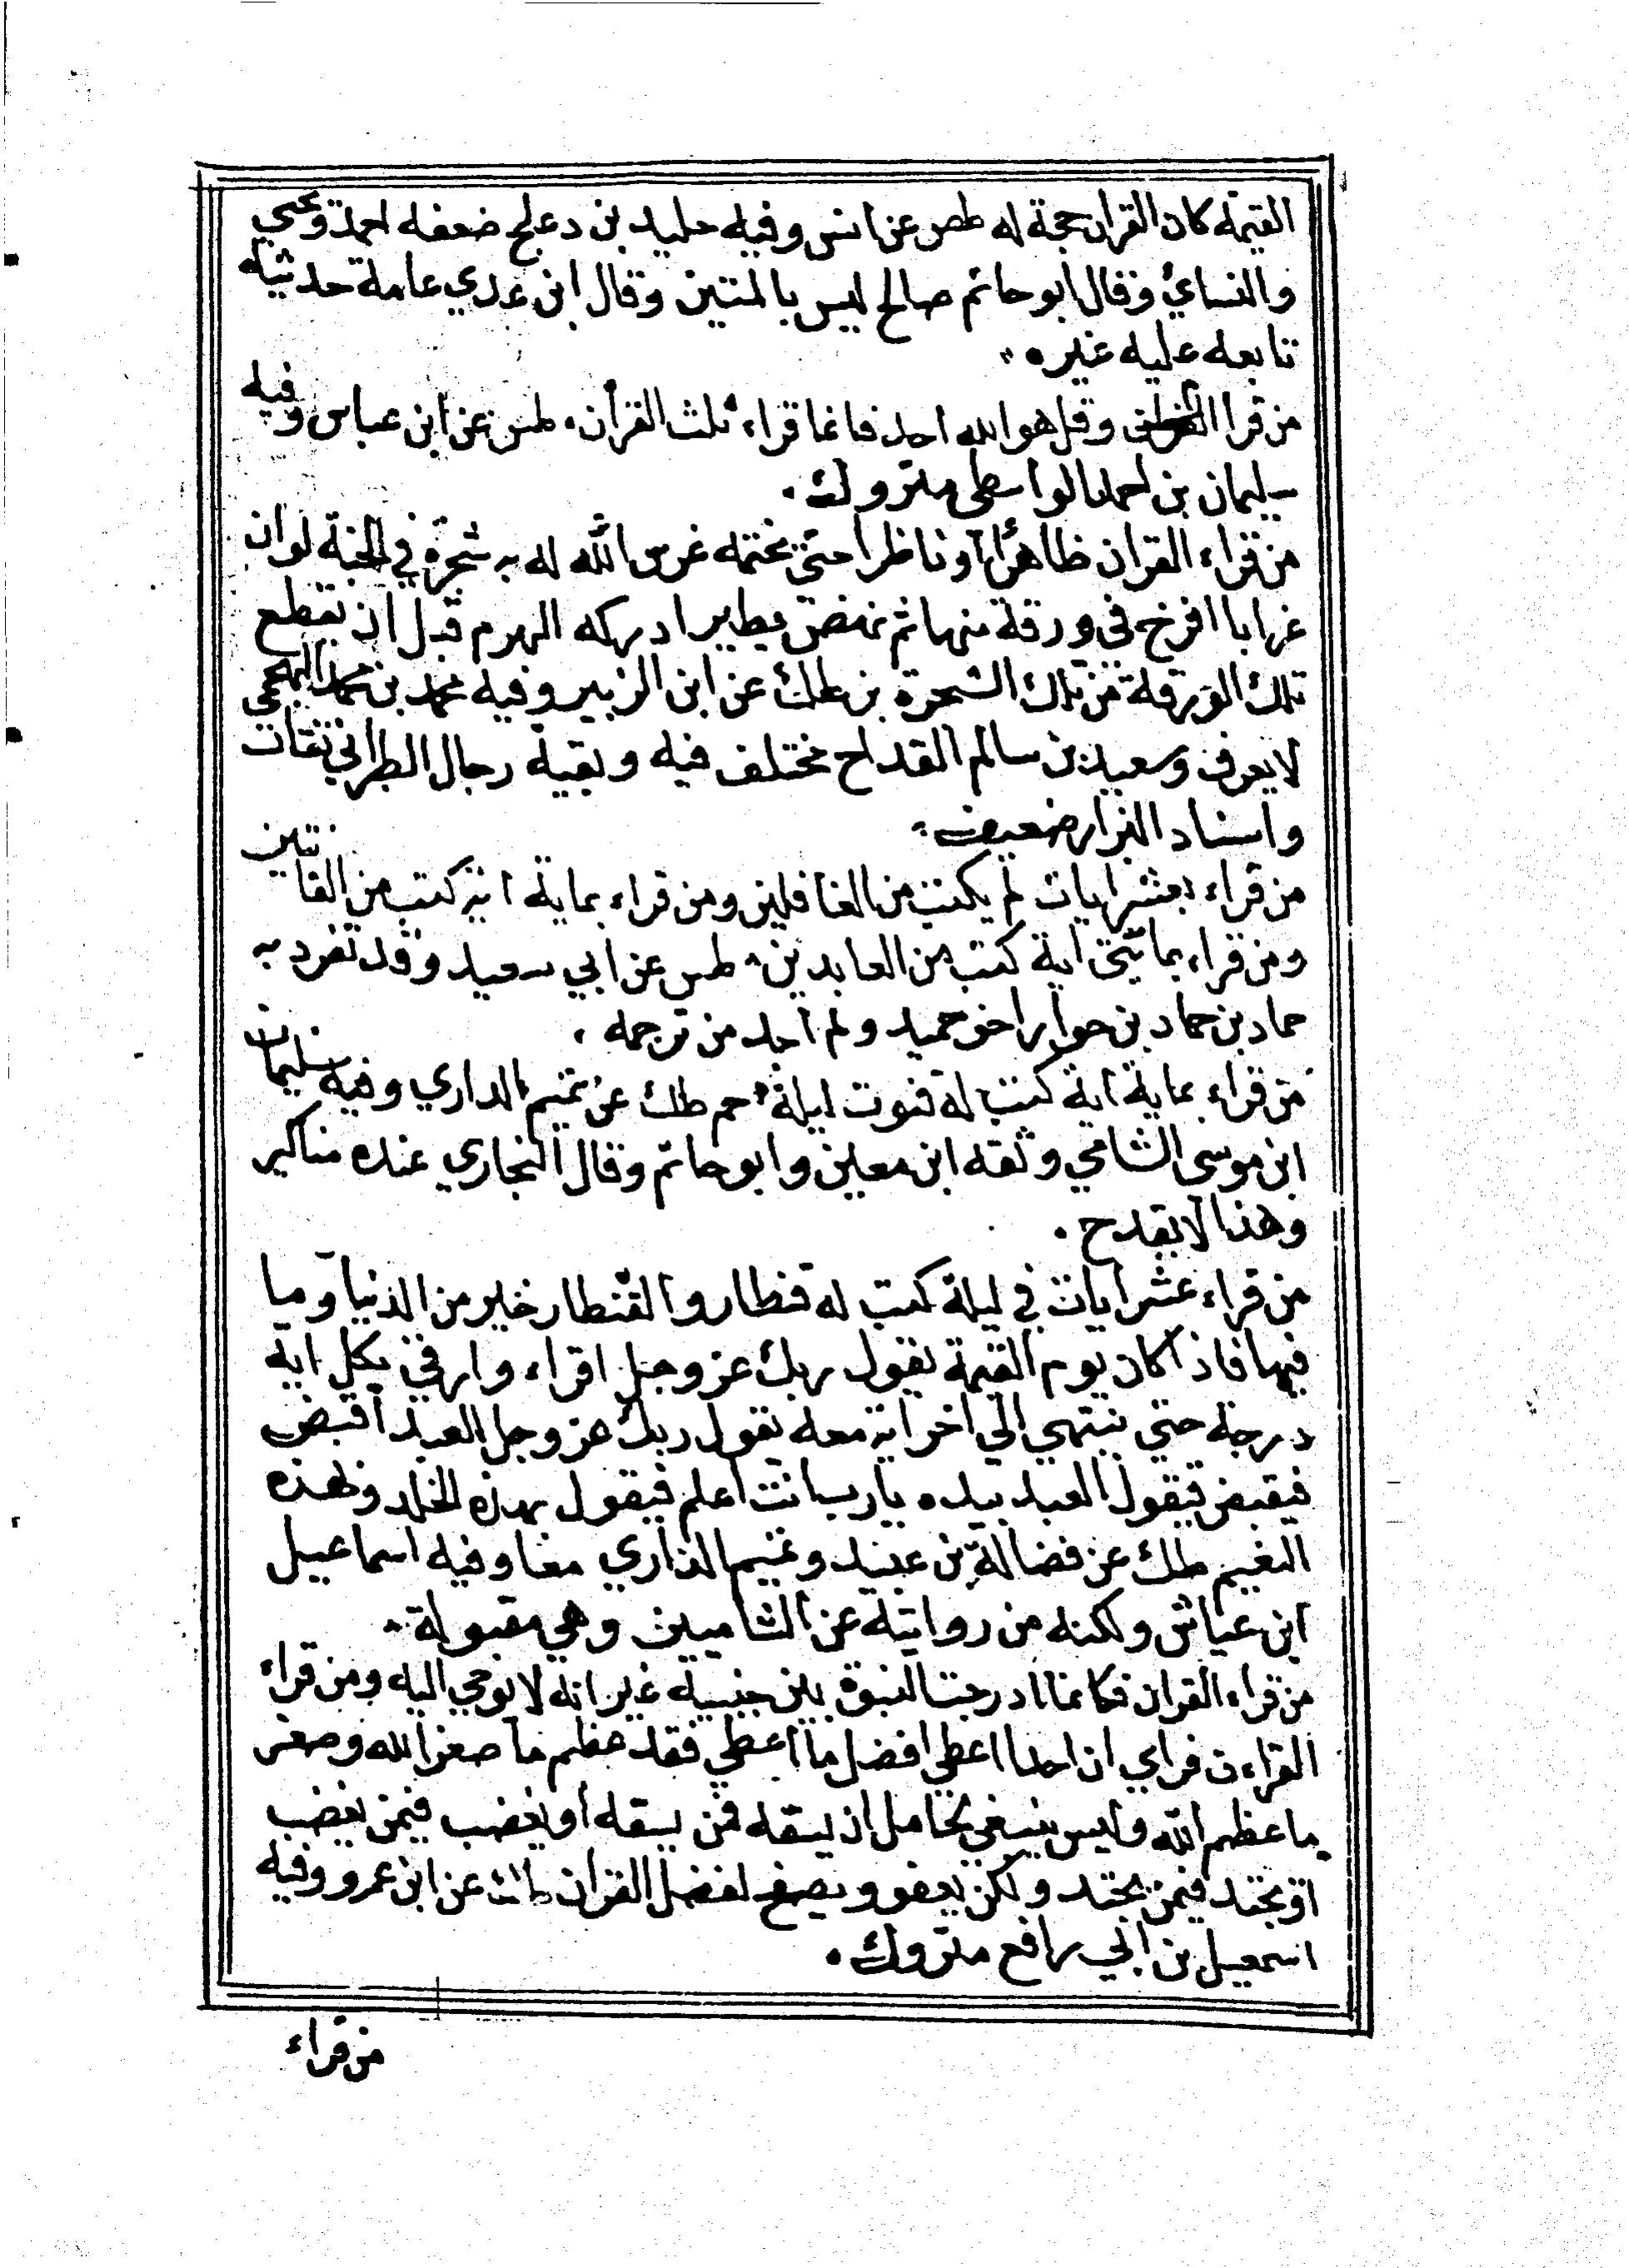 القيمة كان القران حجة له طص عن انس وفيه خليد بن دعلج ضعفه احمد ويحيي
والنسائ وقال ابو حاتم صالح ليس بالمتين وقال ابن عدي عامة حديثه
تابعه عليه غيره
من قرا وقل هو الله احد فانما قراء ثلث القرأن طس عن ابن عباس وفيه
سليمان بن احمد الواسطي متروك
من قراء القران ظاهرا او ناظرا حتي يختمه غرس الله له به شجرة في الجنة لو ان
غرابا افرخ في ورقة منها ثم نهض يطير ادركه الهرم قبل ان تقطع
تلك الورقة من تلك الشجرة بز طك عن ابن الزبير وفيه محمد بن محمد الهجمي
لا يعرف وسعيد بن سالم القداح مختلف فيه وبقية رجال الطبراني ثقات
واسناد البزار ضعيف
من قراء بعشر ايات لم يكتب من الغافلين ومن قراء بماية اية كتب من القانتين
ومن قراء بمائتي اية كتب من العابدين طس عن ابي سعيد وقد تفرد به
حماد بن حماد بن حوار اخو حميد ولم اجد من ترجمه
من قراء بماية اية كتب له قنوت ليلة حم طك عن تميم الداري وفيه سليمان
ابن موسى الشامي وثقه ابن معين وابو حاتم وقال البخاري عنده مناكير
وهذا لا يقدح
من قراء عشر ايات في ليلة كتب له قنطار والقنطار خير من الدنيا وما
فيها فاذا كان يوم القيمة يقول ربك عز وجل اقراء وارقي بكل اية
درجة حتي ينتهي الي اخر اية معه يقول ربك عز وجل العبد اقبض
فيقبض فيقول العبد بيده يا رب انت اعلم فيقول بهذه الخلد ولهذه
النعيم طك عن فضالة بن عبيد وتميم الداري معا وفيه اسماعيل
ابن عياش ولكنه من روايته عن الشاميين وهي مقبولة
من قراء القران فكانما ادرجت النبوة بين جنبيه غير انه لا يوحي اليه ومن قراء
القراءن فراي ان احدا اعطي افضل ما اعطي فقد عظم ما صغر الله وصغر
ما عظم الله وليس ينبغي لحامل ان يسفه فمن يسفه أو يغضب فيمن يغضب
او يحتد فيمن يحتد ولكن يعفو ويصفح لفضل القران طك عن ابن عمرو وفيه
اسمعيل بن ابي رافع متروك
من قراء